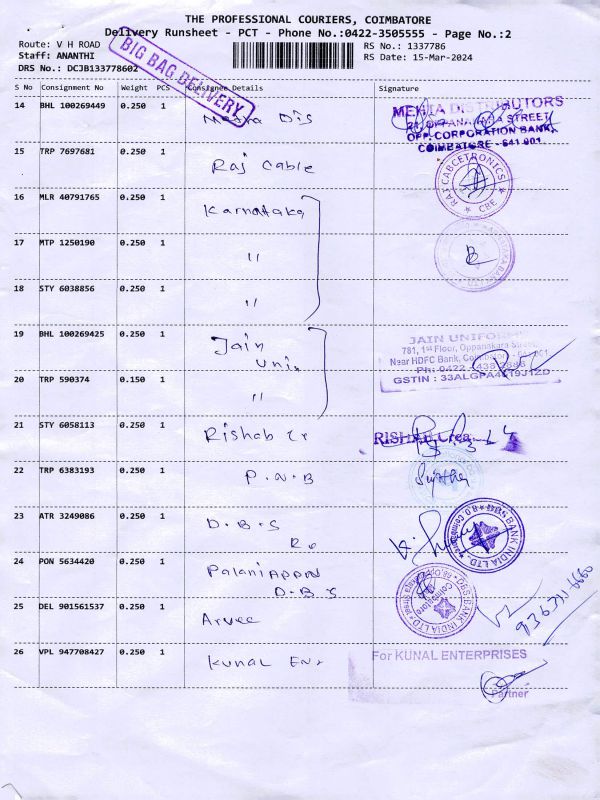 THE PROFESSIONAL COURIERS, COIMBATORE
Delivery Runsheet - PCT - Phone No.:0422-3505555 - Page No.:2
Route: V H ROAD
RS No.: 1337786
Staff: ANANTHI
RS Date: 15-Mar-2024
DRS No.: DCJB133778602
BIG BAG DELIVERY
S No Consignment No Weight PCS Consignee Details Signature
14 BHL 100269449 0.250 1 Dis
MEHTA DISTRIBUTORS
OPPANAKARA STREET
OPP. CORPORATION BANK,
COIMBATORE - 641 001
15 TRP 7697681 0.250 1 Raj Cable
RAJ CABCETRONICS CBE
16 MLR 40791765 0.250 1 Karnataka
17 MTP 1250190 0.250 1 "
18 STY 6038856 0.250 1 "
19 BHL 100269425 0.250 1 Jain
Uni.
JAIN UNIFORM
781, 1st Floor, Oppanakara Street,
Near HDFC Bank, Coimbatore - 641 001
Ph: 0422 - 438
GSTIN : 33ALGPA4619J1ZD
20 TRP 590374 0.150 1 "
21 STY 6058113 0.250 1 Rishab Cr
RISHAB Crea
22 TRP 6383193 0.250 1 P.N.B
23 ATR 3249086 0.250 1 D.B.S
DBS BANK INDIA LTD.
24 PON 5634420 0.250 1 Palaniappan
D.B.S
DBS BANK INDIA LTD
Coimbatore
25 DEL 901561537 0.250 1 Arvee
26 VPL 947708427 0.250 1 Kunal Ent
For KUNAL ENTERPRISES
Partner